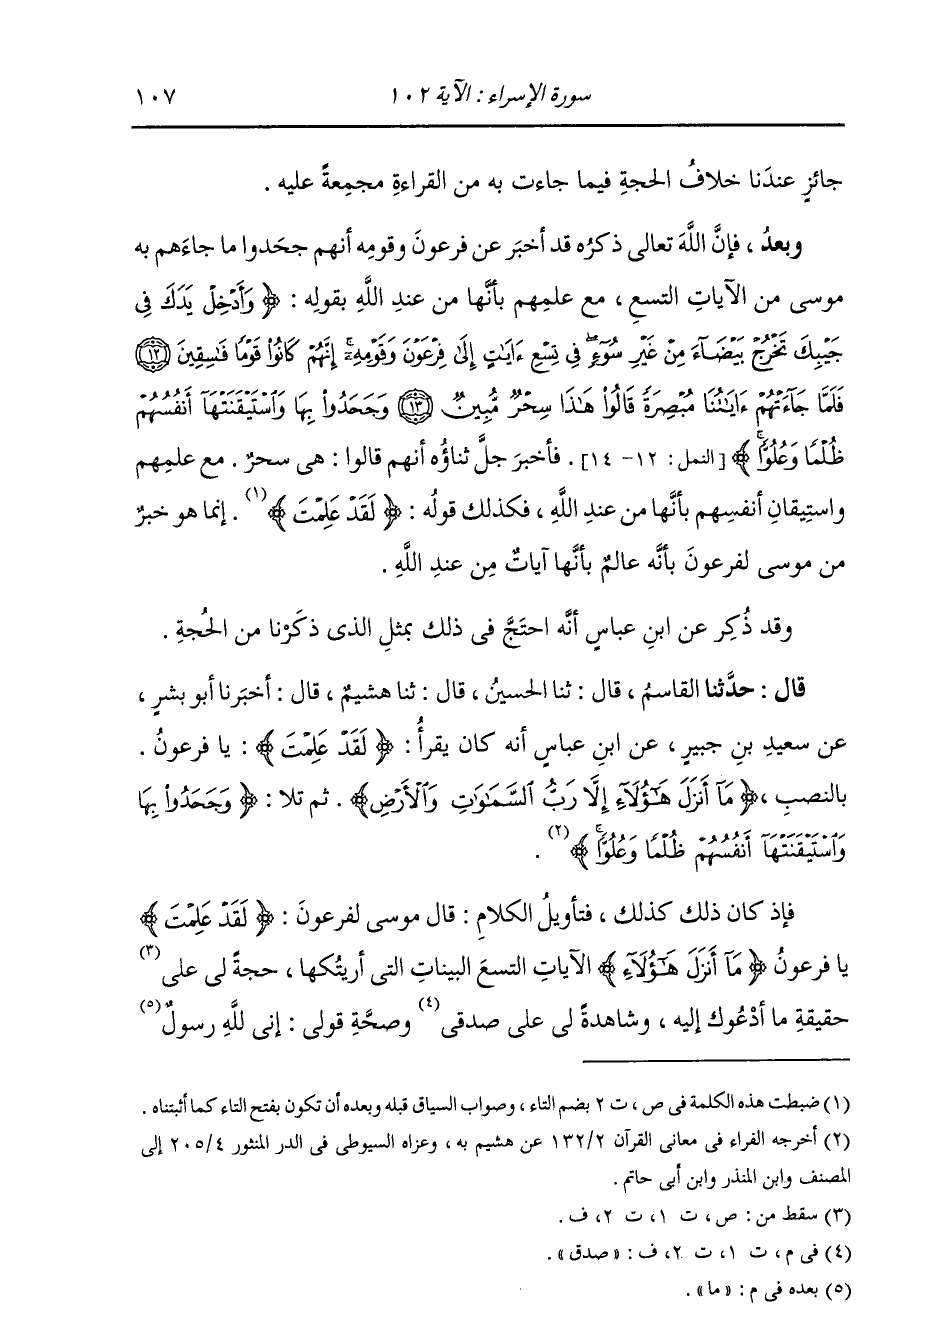 سورة الإسراء : الآية ١٠٢ ١٠٧
جائزٍ عندَنا خلافُ الحجةِ فيما جاءت به من القراءةِ مجمِعةً عليه .
وبعدُ ، فإنَّ اللَّهَ تعالى ذكرُه قد أخبَر عن فرعونَ وقومِه أنهم جحَدوا ما جاءَهم به
موسى من الآياتِ التسعِ ، مع علمِهم بأنَّها من عندِ اللَّهِ بقولِه : ﴿ وَأَدْخِلْ يَدَكَ فِى
جَيْبِكَ تَخْرُجْ بَيْضَآءَ مِنْ غَيْرِ سُوٓءٍ ۖ فِى تِسْعِ ءَايَٰتٍ إِلَىٰ فِرْعَوْنَ وَقَوْمِهِۦٓ ۚ إِنَّهُمْ كَانُوا۟ قَوْمًا فَٰسِقِينَ ﴿١٢﴾
فَلَمَّا جَآءَتْهُمْ ءَايَٰتُنَا مُبْصِرَةً قَالُوا۟ هَٰذَا سِحْرٌ مُّبِينٌ ﴿١٣﴾ وَجَحَدُوا۟ بِهَا وَٱسْتَيْقَنَتْهَآ أَنفُسُهُمْ
ظُلْمًا وَعُلُوًّا ۚ ﴾ [النمل : ١٢- ١٤] . فأخبرَ جلَّ ثناؤُه أنهم قالوا : هى سحرٌ . مع علمِهم
واستِيقانِ أنفسِهم بأنَّها من عندِ اللَّهِ ، فكذلك قولُه : ﴿ لَقَدْ عَلِمْتَ ﴾ (١) . إنما هو خبرٌ
من موسى لفرعونَ بأنَّه عالمٌ بأنَّها آياتٌ مِن عندِ اللَّهِ .
وقد ذُكِر عن ابنِ عباسٍ أنَّه احتَجَّ فى ذلك بمثلِ الذى ذكَرْنا من الحُجةِ .
قال : حدَّثنا القاسمُ ، قال : ثنا الحسينُ ، قال : ثنا هشيمٌ ، قال : أخبَرنا أبو بشرٍ ،
عن سعيدِ بنِ جبيرٍ ، عن ابنِ عباسٍ أنه كان يقرأُ : ﴿ لَقَدْ عَلِمْتَ ﴾ : يا فرعونُ .
بالنصبِ ، ﴿ مَآ أَنزَلَ هَٰٓؤُلَآءِ إِلَّا رَبُّ ٱلسَّمَٰوَٰتِ وَٱلْأَرْضِ ﴾ . ثم تلا : ﴿ وَجَحَدُوا۟ بِهَا
وَٱسْتَيْقَنَتْهَآ أَنفُسُهُمْ ظُلْمًا وَعُلُوًّا ۚ ﴾ (٢) .
فإذ كان ذلك كذلك ، فتأويلُ الكلامِ : قال موسى لفرعونَ : ﴿ لَقَدْ عَلِمْتَ ﴾
يا فرعونُ ﴿ مَآ أَنزَلَ هَٰٓؤُلَآءِ ﴾ الآياتِ التسعَ البيناتِ التى أريتُكها ، حجةً لى على (٣)
حقيقةِ ما أدْعُوك إليه ، وشاهدةً لى على صدقى (٤) وصحَّةِ قولى : إنى للَّهِ رسولٌ (٥)
(١) ضبطت هذه الكلمة فى ص ، ت ٢ بضم التاء ، وصواب السياق قبله وبعده أن تكون بفتح التاء كما أثبتناه .
(٢) أخرجه الفراء فى معانى القرآن ١٣٢/٢ عن هشيم به ، وعزاه السيوطى فى الدر المنثور ٢٠٥/٤ إلى
المصنف وابن المنذر وابن أبى حاتم .
(٣) سقط من : ص ، ت ١ ، ت ٢ ، ف .
(٤) فى م ، ت ١ ، ت ٢ ، ف : «صدق» .
(٥) بعده فى م : «ما» .